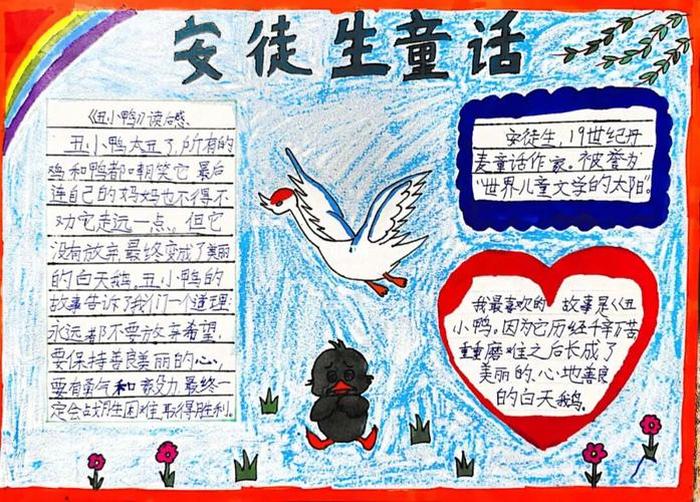 安徒生童话
《丑小鸭》读后感
丑小鸭太丑了,所有的
鸡和鸭都嘲笑它,最后
连自己的妈妈也不得不
劝它走远一点。但它
没有放弃,最终变成了美丽
的白天鹅,丑小鸭的
故事告诉了我们一个道理:
永远都不要放弃希望,
要保持善良美丽的心,
要有勇气和毅力,最终一
定会战胜困难,取得胜利。
安徒生,19世纪丹
麦童话作家。被誉为
"世界儿童文学的太阳"。
我最喜欢的故事是《丑
小鸭。因为它历经千辛万苦
重重磨难之后长成了
美丽的、心地善良
的白天鹅。